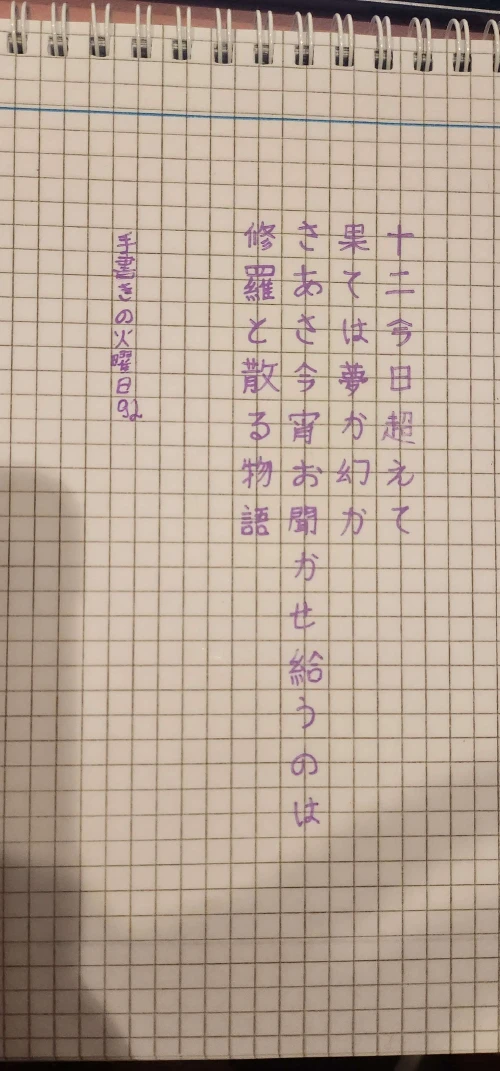 十二今日超えて
果ては夢か幻か
さあさ今宵お聞かせ給うのは
修羅と散る物語
手書きの火曜日92